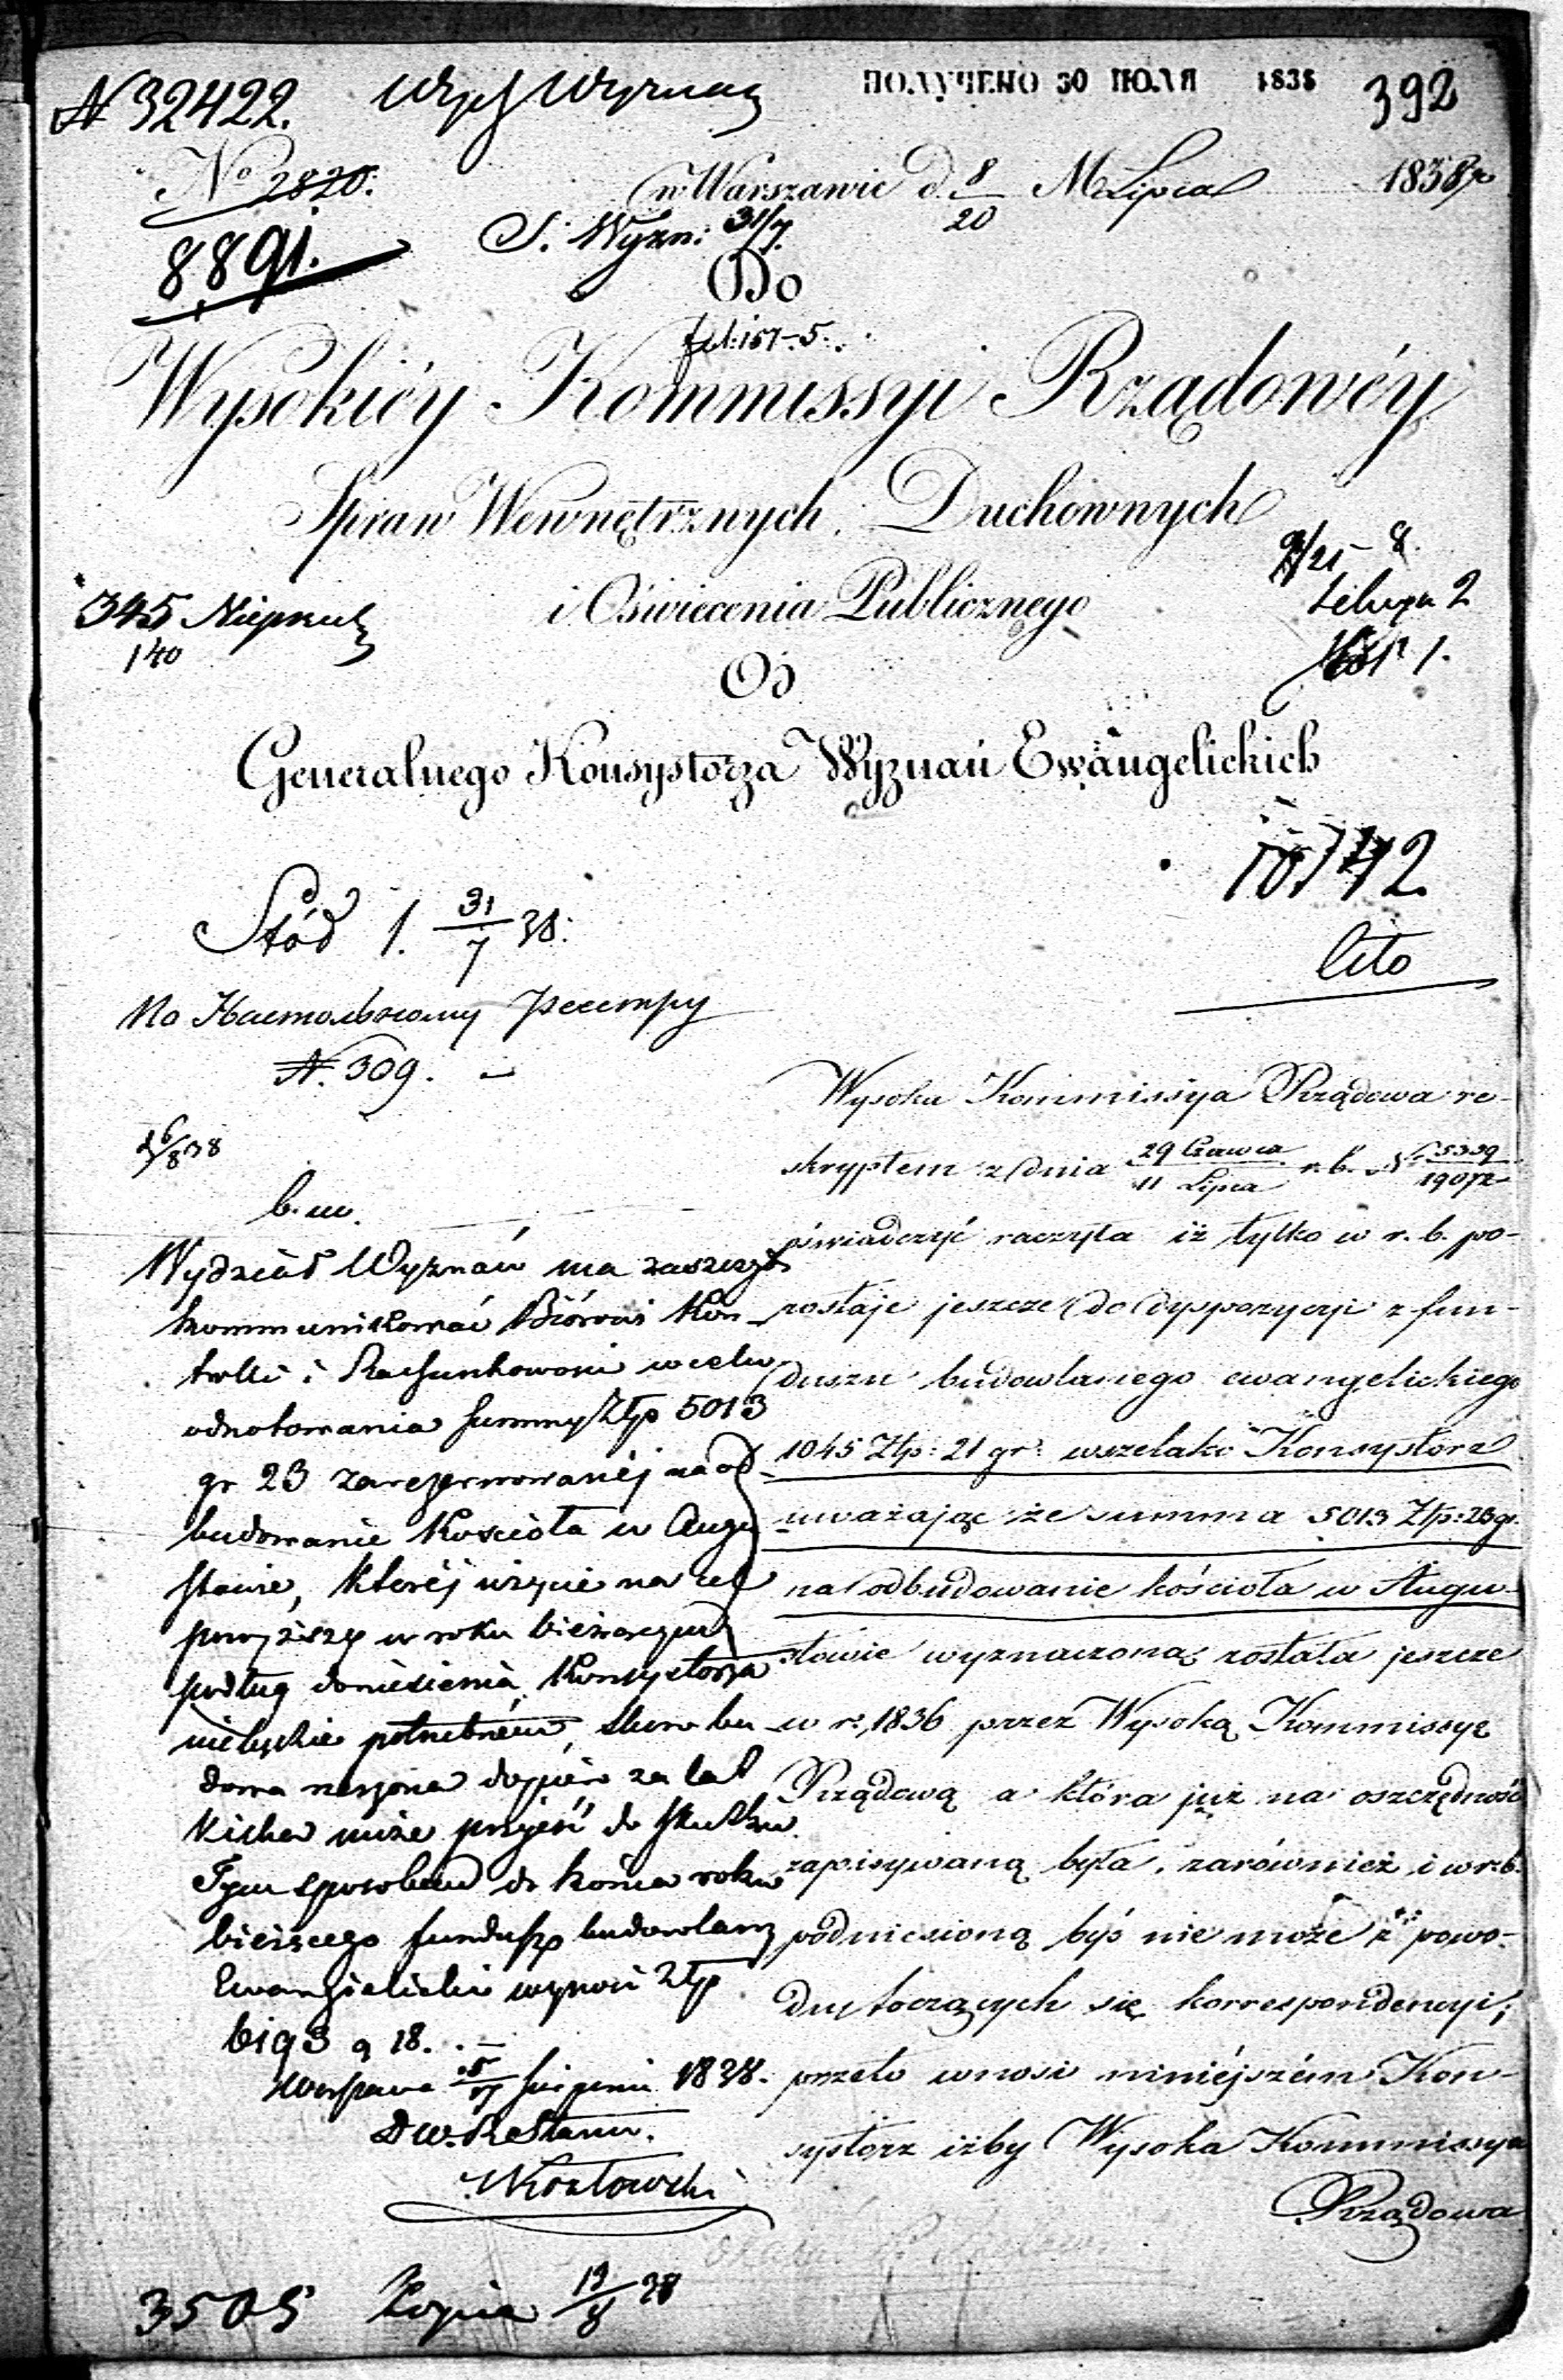 N 32422. Wyz Wyznań
ПОЛУЧЕНО 30 ІЮЛЯ 1838 392
No 2820.
w Warszawie d. 8/20 M. Lipca 1838 r.
8891. S. Wyzn: 31/7
Do
157-5.
Wysokiéy Kommissyi Rządowéy
Spraw Wewnętrznych, Duchownych
i Oświecenia Publicznego
345
140
Od
Generalnego Konsystorza Wyznań Ewangelickich
10742
cito
Stół 1. 31/7 38.
По Настольному Реестру
N. 309. -
Wysoka Kommissya Rządowa re-
skryptem z dnia 29 Czerwca/11 Lipca r. b. N. 5339/19072
oświadczyć raczyła iż tylko w r. b. po-
zostaje jeszcze do dyspozycyi z fun-
duszu budowlanego ewangelickiego
1045 Złp: 21 gr: wszelako Konsystorz
uważając że summa 5013 Złp: 23 gr.
na odbudowanie kościoła w Augu-
stowie wyznaczoną została jeszcze
w r. 1836 przez Wysoką Kommissyę
Rządową a która już na oszczędność
zapisywaną była, zarównież i w r. b.
podniesioną być nie może z powo-
du toczących się korrespondencyi;
przeto wnosi niniéjszém Kon-
systorz iżby Wysoka Kommissya
Rządowa
6/8 38
b. m.
Wydział Wyznań ma zaszczyt
kommunikować Biórowi Kon-
troli i Rachunkowości w celu
odnotowania summy Złp 5013
gr 23 zarezerwowanéj na od-
budowanie Kościoła w Augu
stowie, któréj użycie na cel
powyższy w roku bieżącym
podług doniesienia Konsystorza
nie będzie potrzebném, skoro bu
dowa rzeczona dopiéro za lat
kilka może przyjść do skutku.
Tym sposobem do końca roku
bieżącego fundusz budowlany
Ewangielicki wynosi Złp
6193 g 18. -
Warszawa 5/17 Sierpnia 1838.
Kozłowski
3505 Kopia 19/8 38